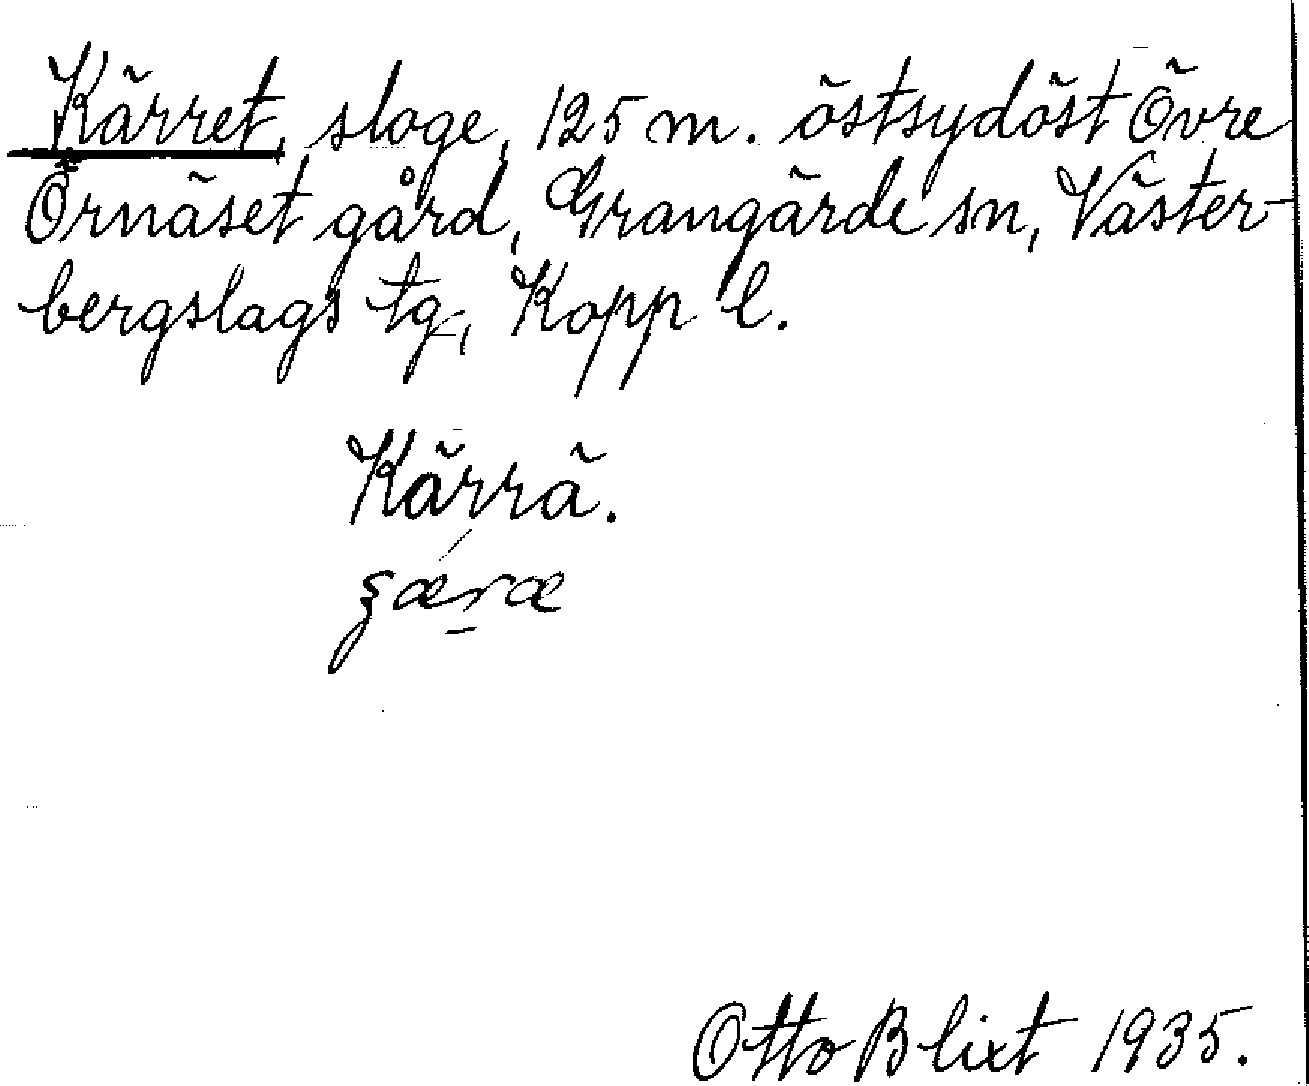 Kärret, sloge, 125 m. östsydöst Övre
Örnäset gård, Grangärde sn, Väster-
bergslags tg, Kopp l.
Kärrä.
Otto Blixt 1935.